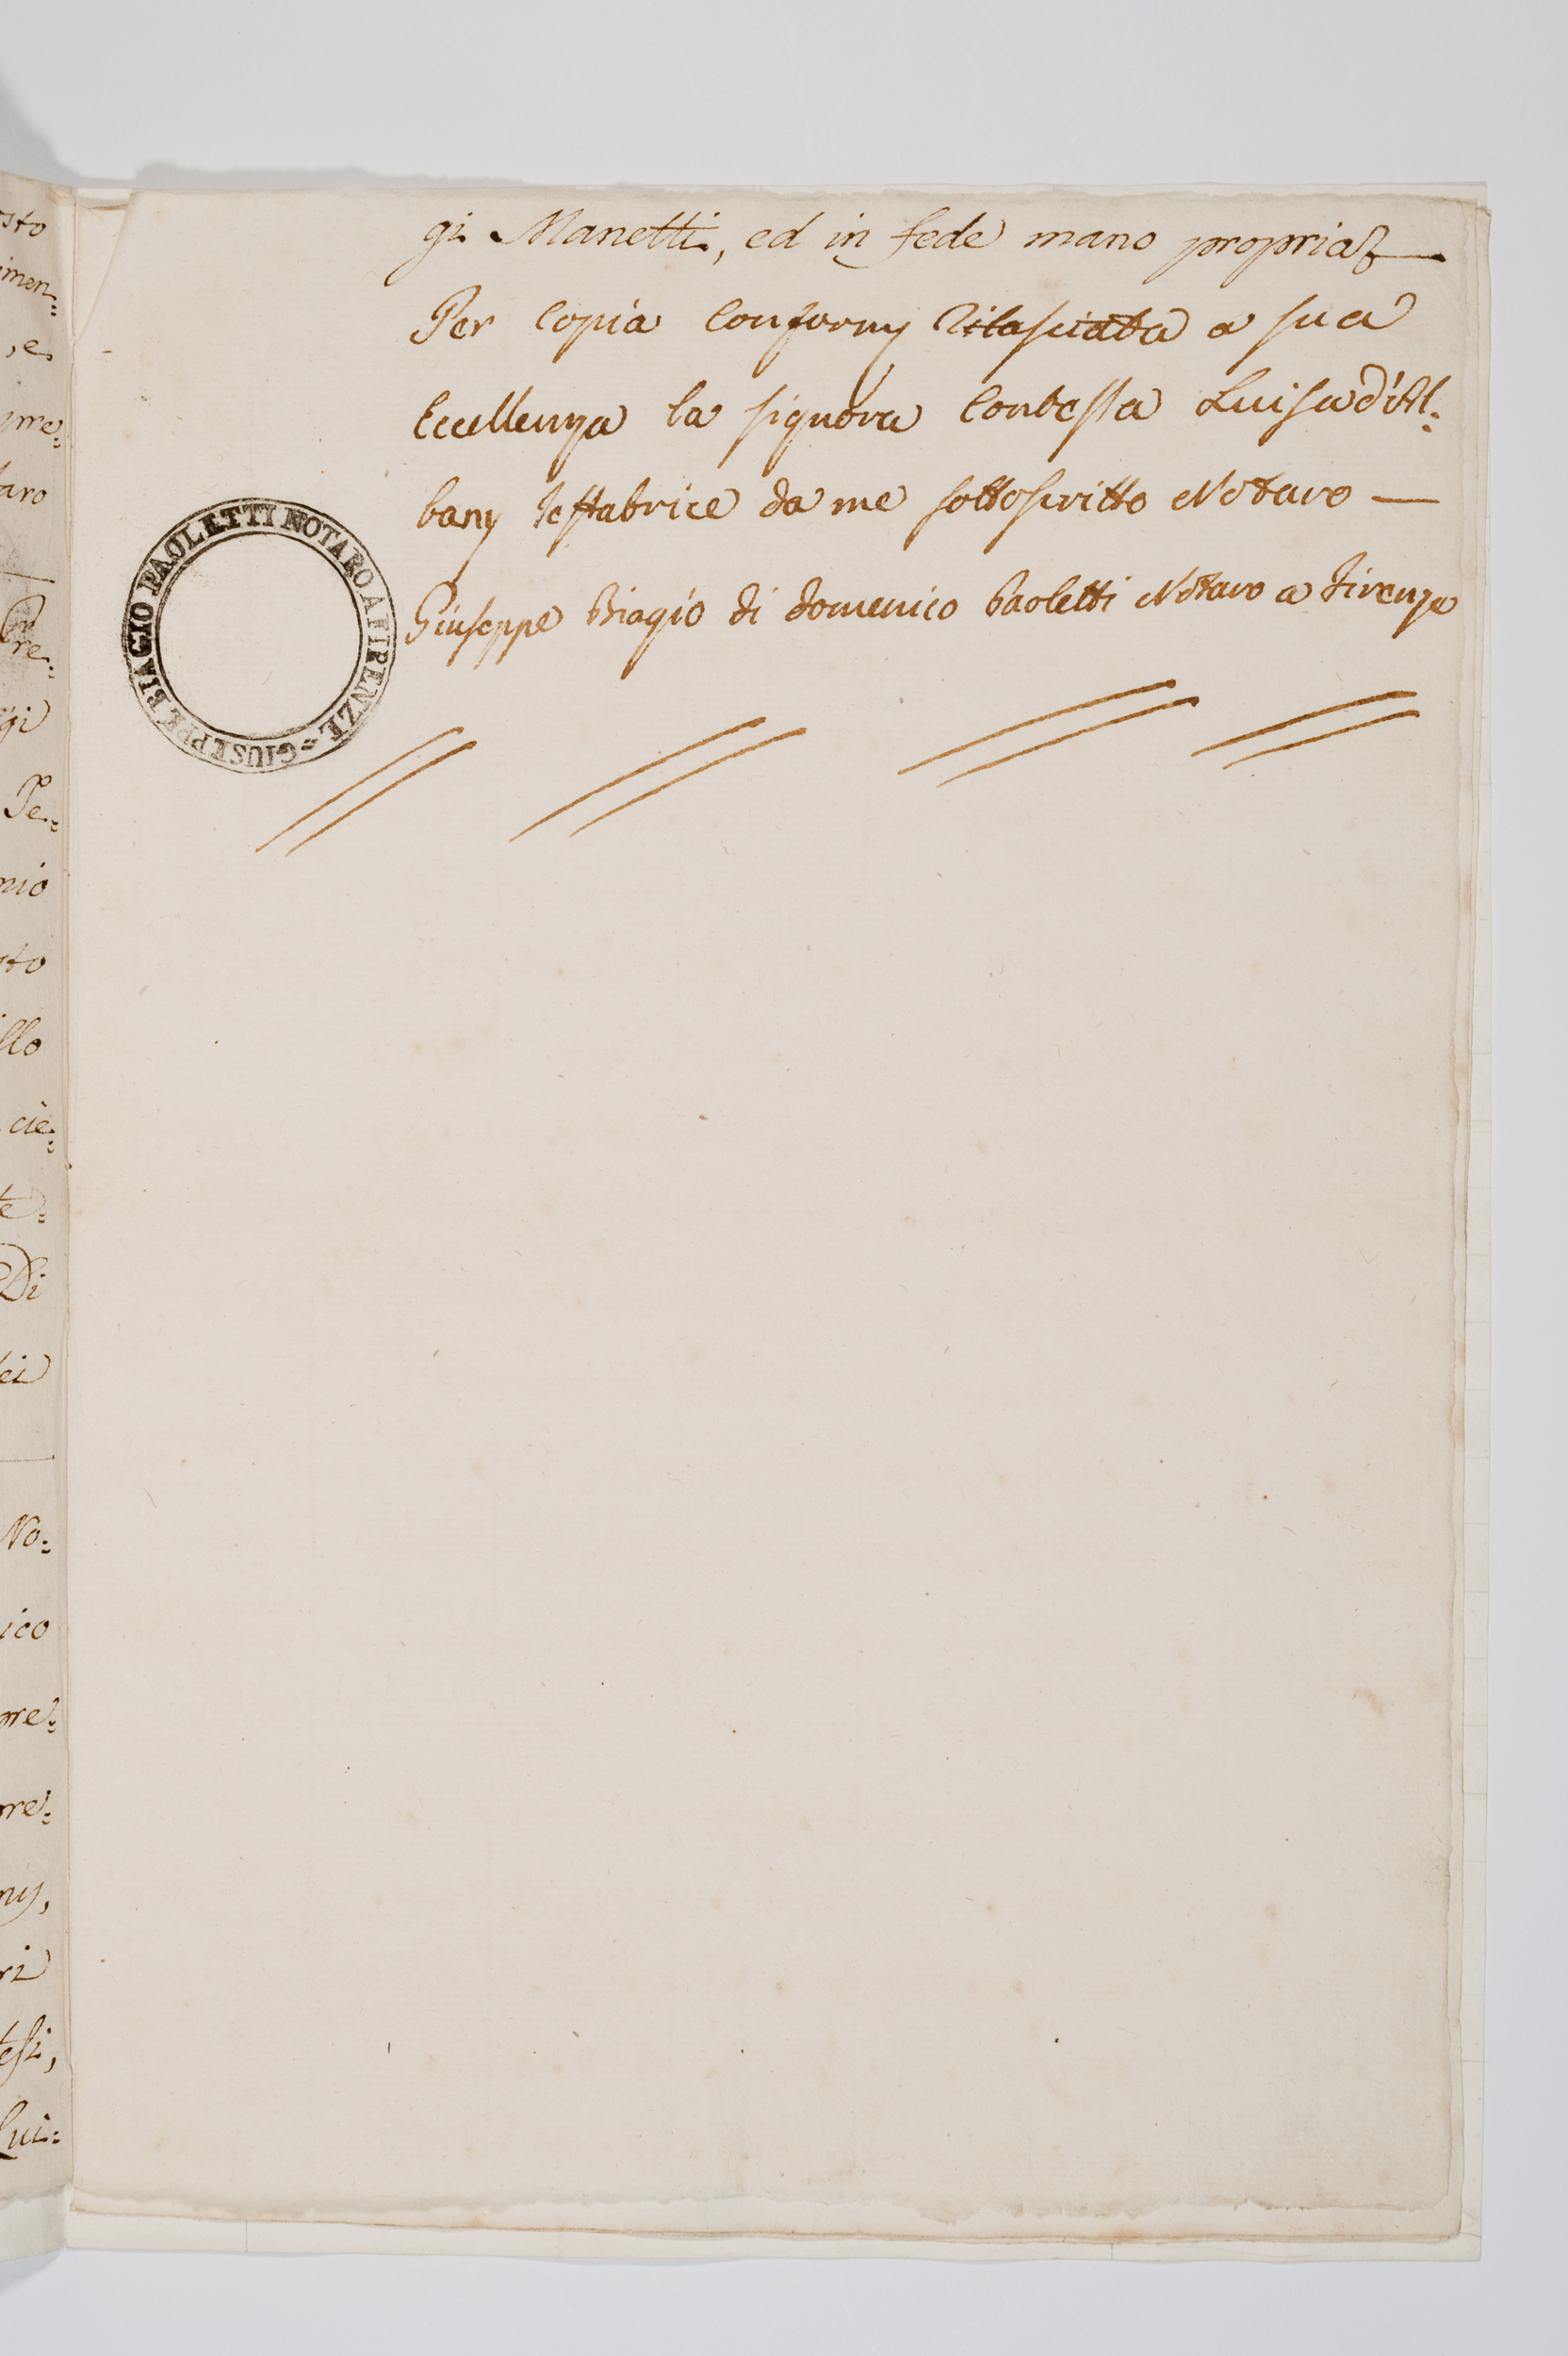 gi Manetti, ed in fede mano propria
Per Copia Conforme Rilasciata a sua
Eccellenza la signora Contessa Luisa d'Al=
bany Testatrice da me sottoscritto Notaro —
Giuseppe Biagio di Domenico Paoletti Notaro a Firenze
GIUSEPPE BIAGIO PAOLETTI NOTARO A FIRENZE =
sto
imen=
, e
pre=
aro
re=
gi
Te=
nio
sto
llo
cie=
te=
Di
lei
No=
ico
pre=
pre=
ny,
ri
tesi,
Lui=